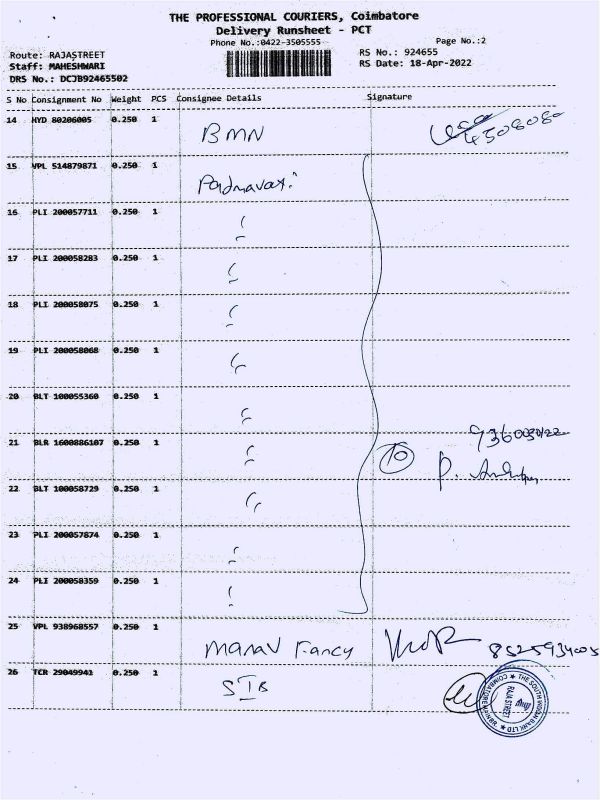 THE PROFESSIONAL COURIERS, Coimbatore
Delivery Runsheet - PCT
Phone No.:0422-3505555
Page No.:2
Route: RAJASTREET
RS No.: 924655
Staff: MAHESHWARI
RS Date: 18-Apr-2022
DRS No.: DCJB92465502
S No Consignment No Weight PCS Consignee Details Signature
14 HYD 80206005 0.250 1 BMN
15 VPL 514879871 0.250 1 Padmavati
16 PLI 200057711 0.250 1 "
17 PLI 200058283 0.250 1 "
18 PLI 200058075 0.250 1 "
19 PLI 200058068 0.250 1 "
20 BLT 100055360 0.250 1 "
21 BLR 1600886107 0.250 1 " 10
22 BLT 100058729 0.250 1 "
23 PLI 200057874 0.250 1 "
24 PLI 200058359 0.250 1 "
25 VPL 938968557 0.250 1 Manav Fancy
26 TCR 29049941 0.250 1 SIB
THE SOUTH INDIAN BANK LTD
COIMBATORE
RAJA STREET